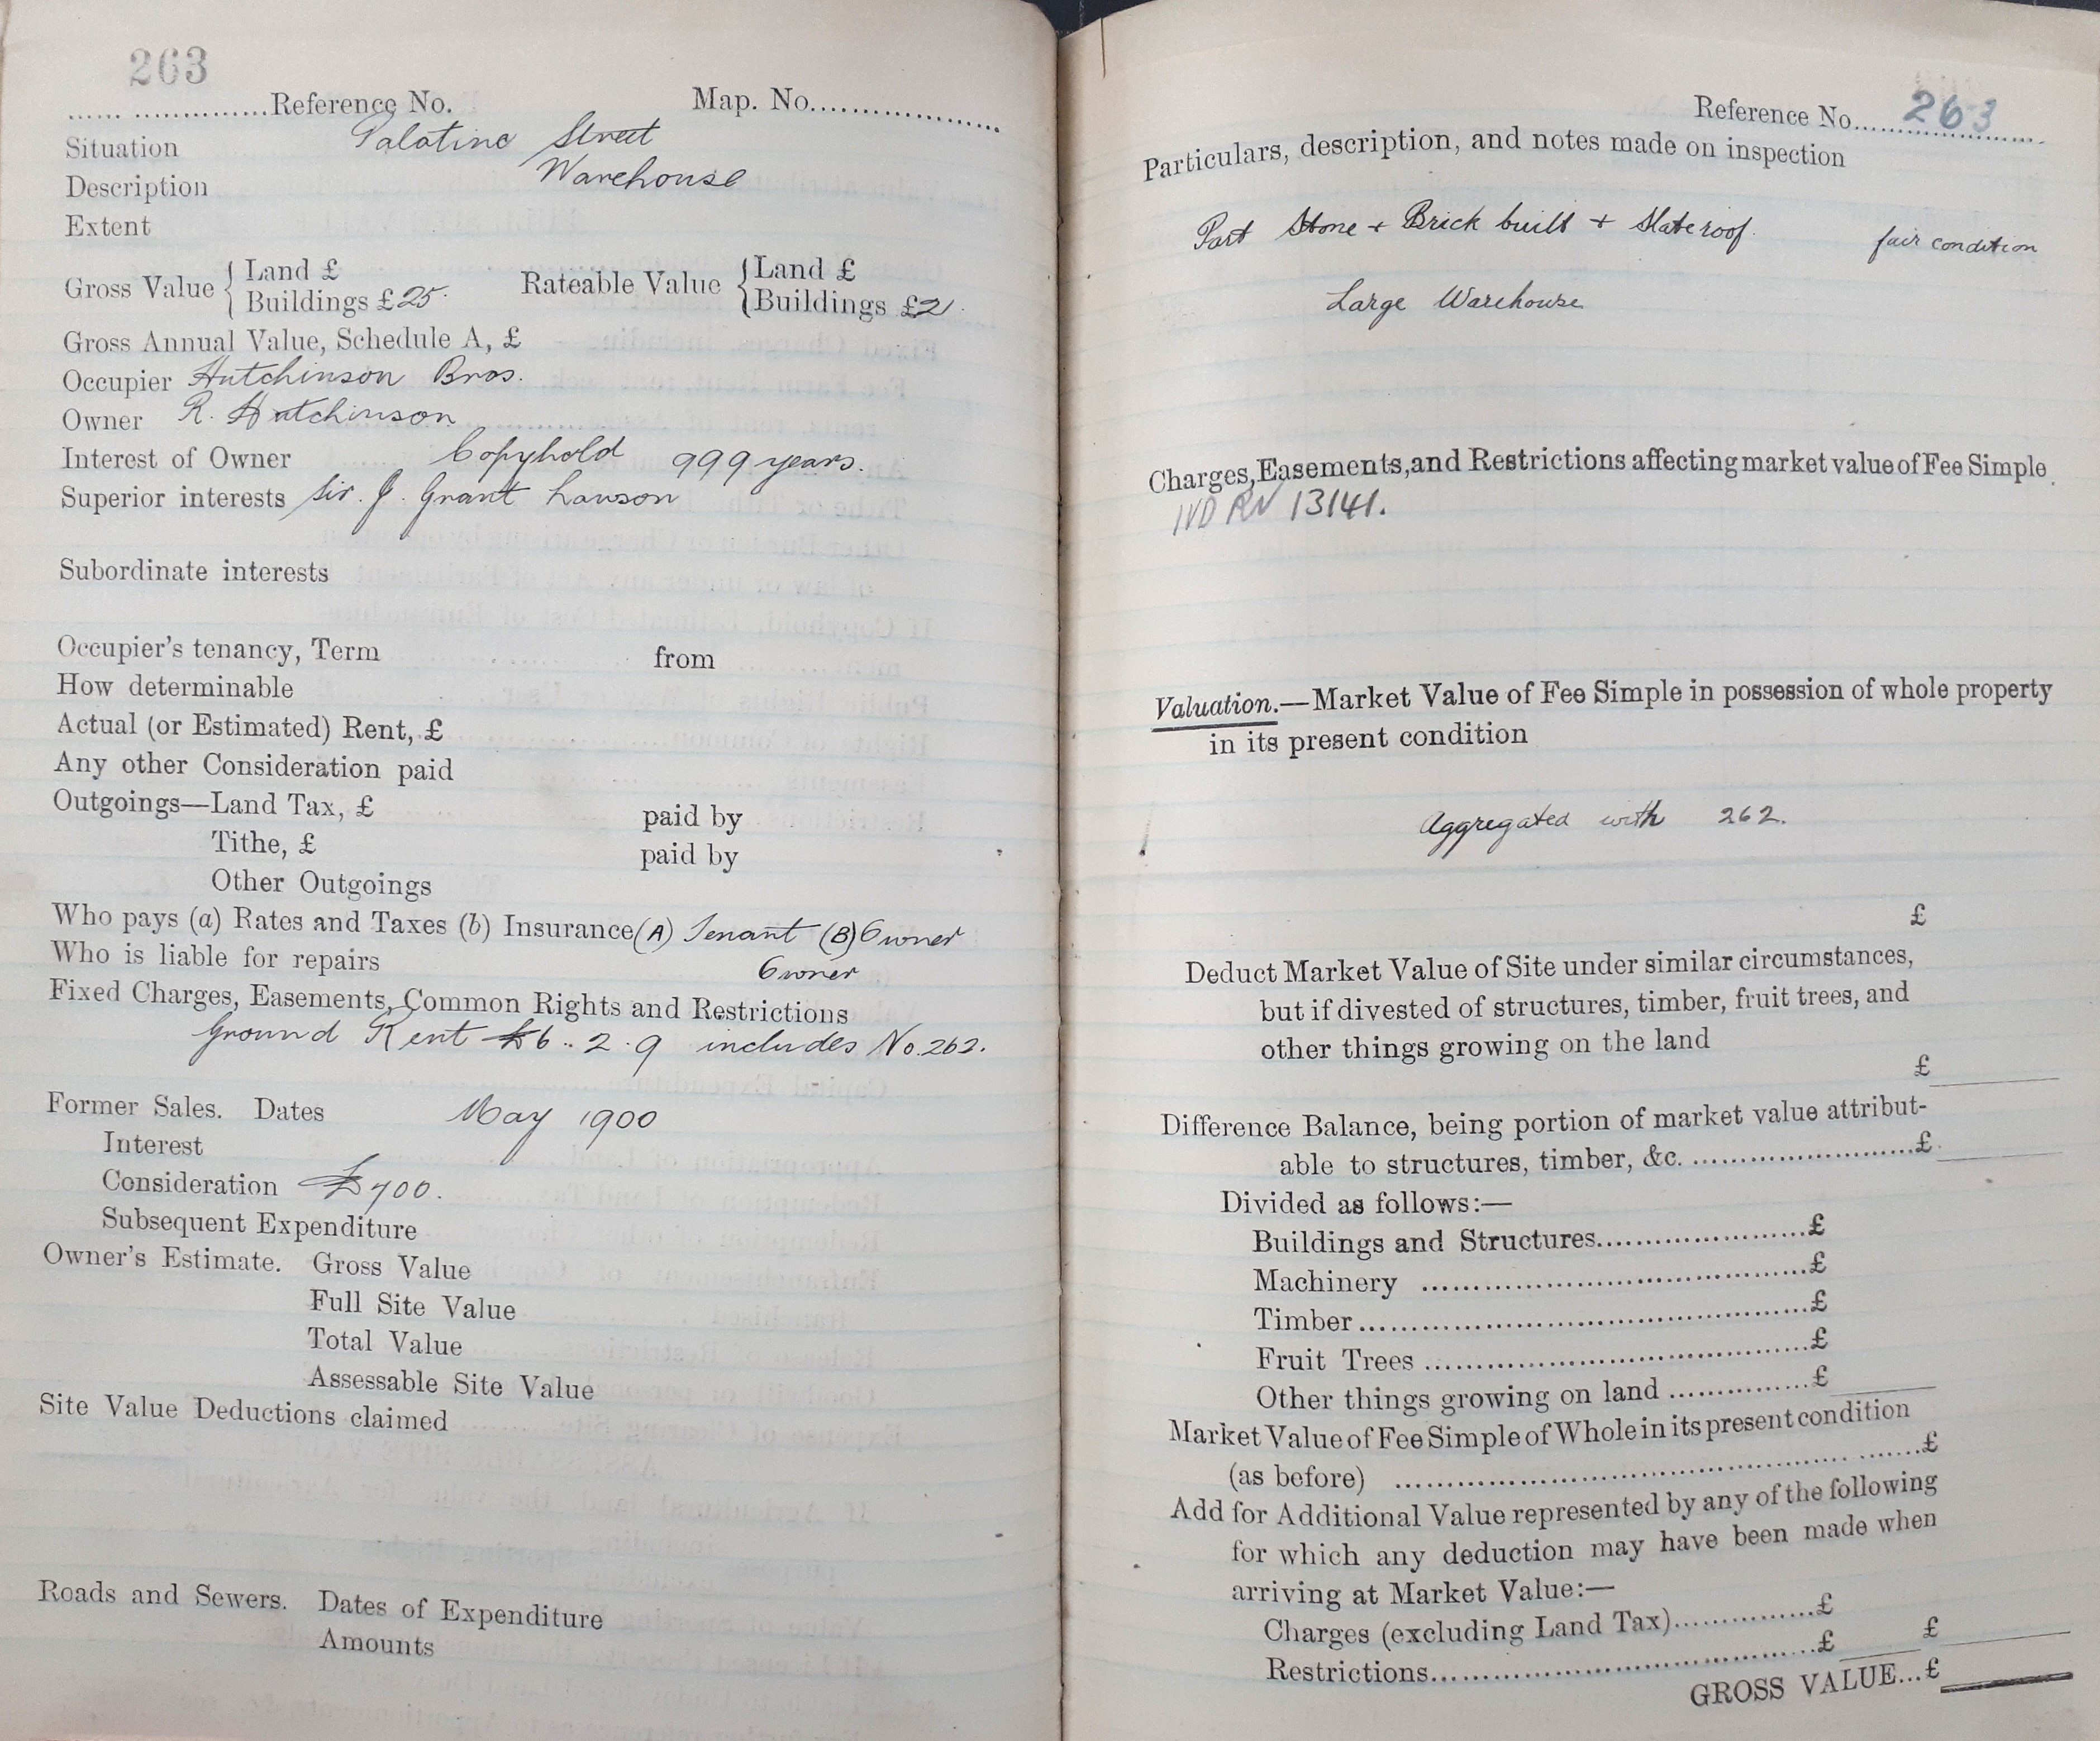 263
Reference No. Map. No.
Situation Palatine Street
Description Warehouse
Extent
Gross Value { Land £ Rateable Value { Land £
Buildings £25. Buildings £21.
Gross Annual Value, Schedule A, £
Occupier Hutchinson Bros.
Owner R. Hutchinson
Interest of Owner Copyhold 999 years.
Superior interests Sir. J. Grant Lawson
Subordinate interests
Occupier's tenancy, Term from
How determinable
Actual (or Estimated) Rent, £
Any other Consideration paid
Outgoings—Land Tax, £ paid by
Tithe, £ paid by
Other Outgoings
Who pays (a) Rates and Taxes (b) Insurance (A) Tenant (B) Owner
Who is liable for repairs Owner
Fixed Charges, Easements, Common Rights and Restrictions
Ground Rent £6..2.9 includes No. 262.
Former Sales. Dates May 1900
Interest
Consideration £700.
Subsequent Expenditure
Owner's Estimate. Gross Value
Full Site Value
Total Value
Assessable Site Value
Site Value Deductions claimed
Roads and Sewers. Dates of Expenditure
Amounts
Reference No. 263
Particulars, description, and notes made on inspection
Part Stone + Brick built + Slate roof. fair condition
Large Warehouse
Charges, Easements, and Restrictions affecting market value of Fee Simple
IVD RN 13141.
Valuation.—Market Value of Fee Simple in possession of whole property
in its present condition
Aggregated with 262.
£
Deduct Market Value of Site under similar circumstances,
but if divested of structures, timber, fruit trees, and
other things growing on the land
£
Difference Balance, being portion of market value attribut-
able to structures, timber, &c. £
Divided as follows:—
Buildings and Structures £
Machinery £
Timber £
Fruit Trees £
Other things growing on land £
Market Value of Fee Simple of Whole in its present condition
(as before) £
Add for Additional Value represented by any of the following
for which any deduction may have been made when
arriving at Market Value:—
Charges (excluding Land Tax) £
Restrictions £ £
GROSS VALUE... £